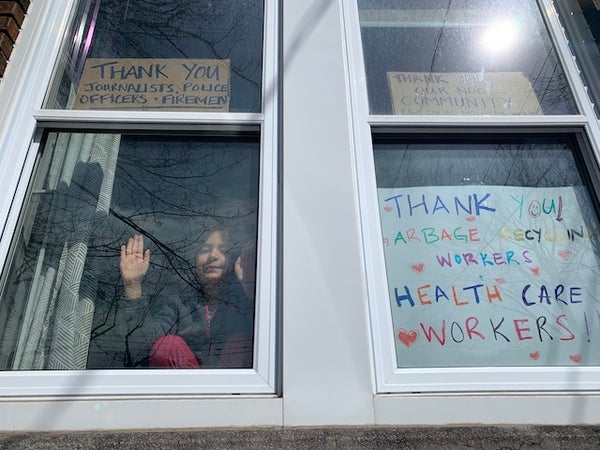 THANK YOU
JOURNALISTS, POLICE
OFFICERS + FIREMEN
THANK YOU
OUR NDG
COMMUNITY
THANK YOU!
ARBAGE RECYCLING
WORKERS
+
HEALTH CARE
WORKERS!!